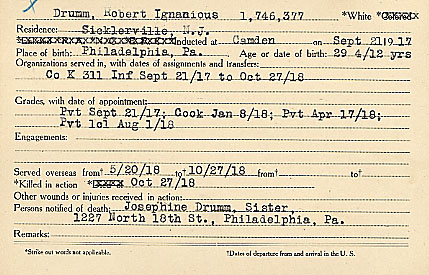 Drumm, Robert Ignamious 1,746,377 *White *Colored
Residence: Sicklerville, N.J.
Inducted at Camden on Sept 21, 1917
Place of birth: Philadelphia, Pa. Age or date of birth: 29 4/12 yrs
Organizations served in, with dates of assignments and transfers:
Co K 311 Inf Sept 21/17 to Oct 27/18
Grades, with date of appointment:
Pvt Sept 21/17; Cook Jan 8/18; Pvt Apr 17/18;
Pvt 1cl Aug 1/18
Engagements:
Served overseas from† 5/20/18 to† 10/27/18 from† to†
*Killed in action * Oct 27/18
Other wounds or injuries received in action:
Persons notified of death: Josephine Drumm, Sister,
1227 North 18th St., Philadelphia, Pa.
Remarks:
*Strike out words not applicable. †Dates of departure from and arrival in the U. S.